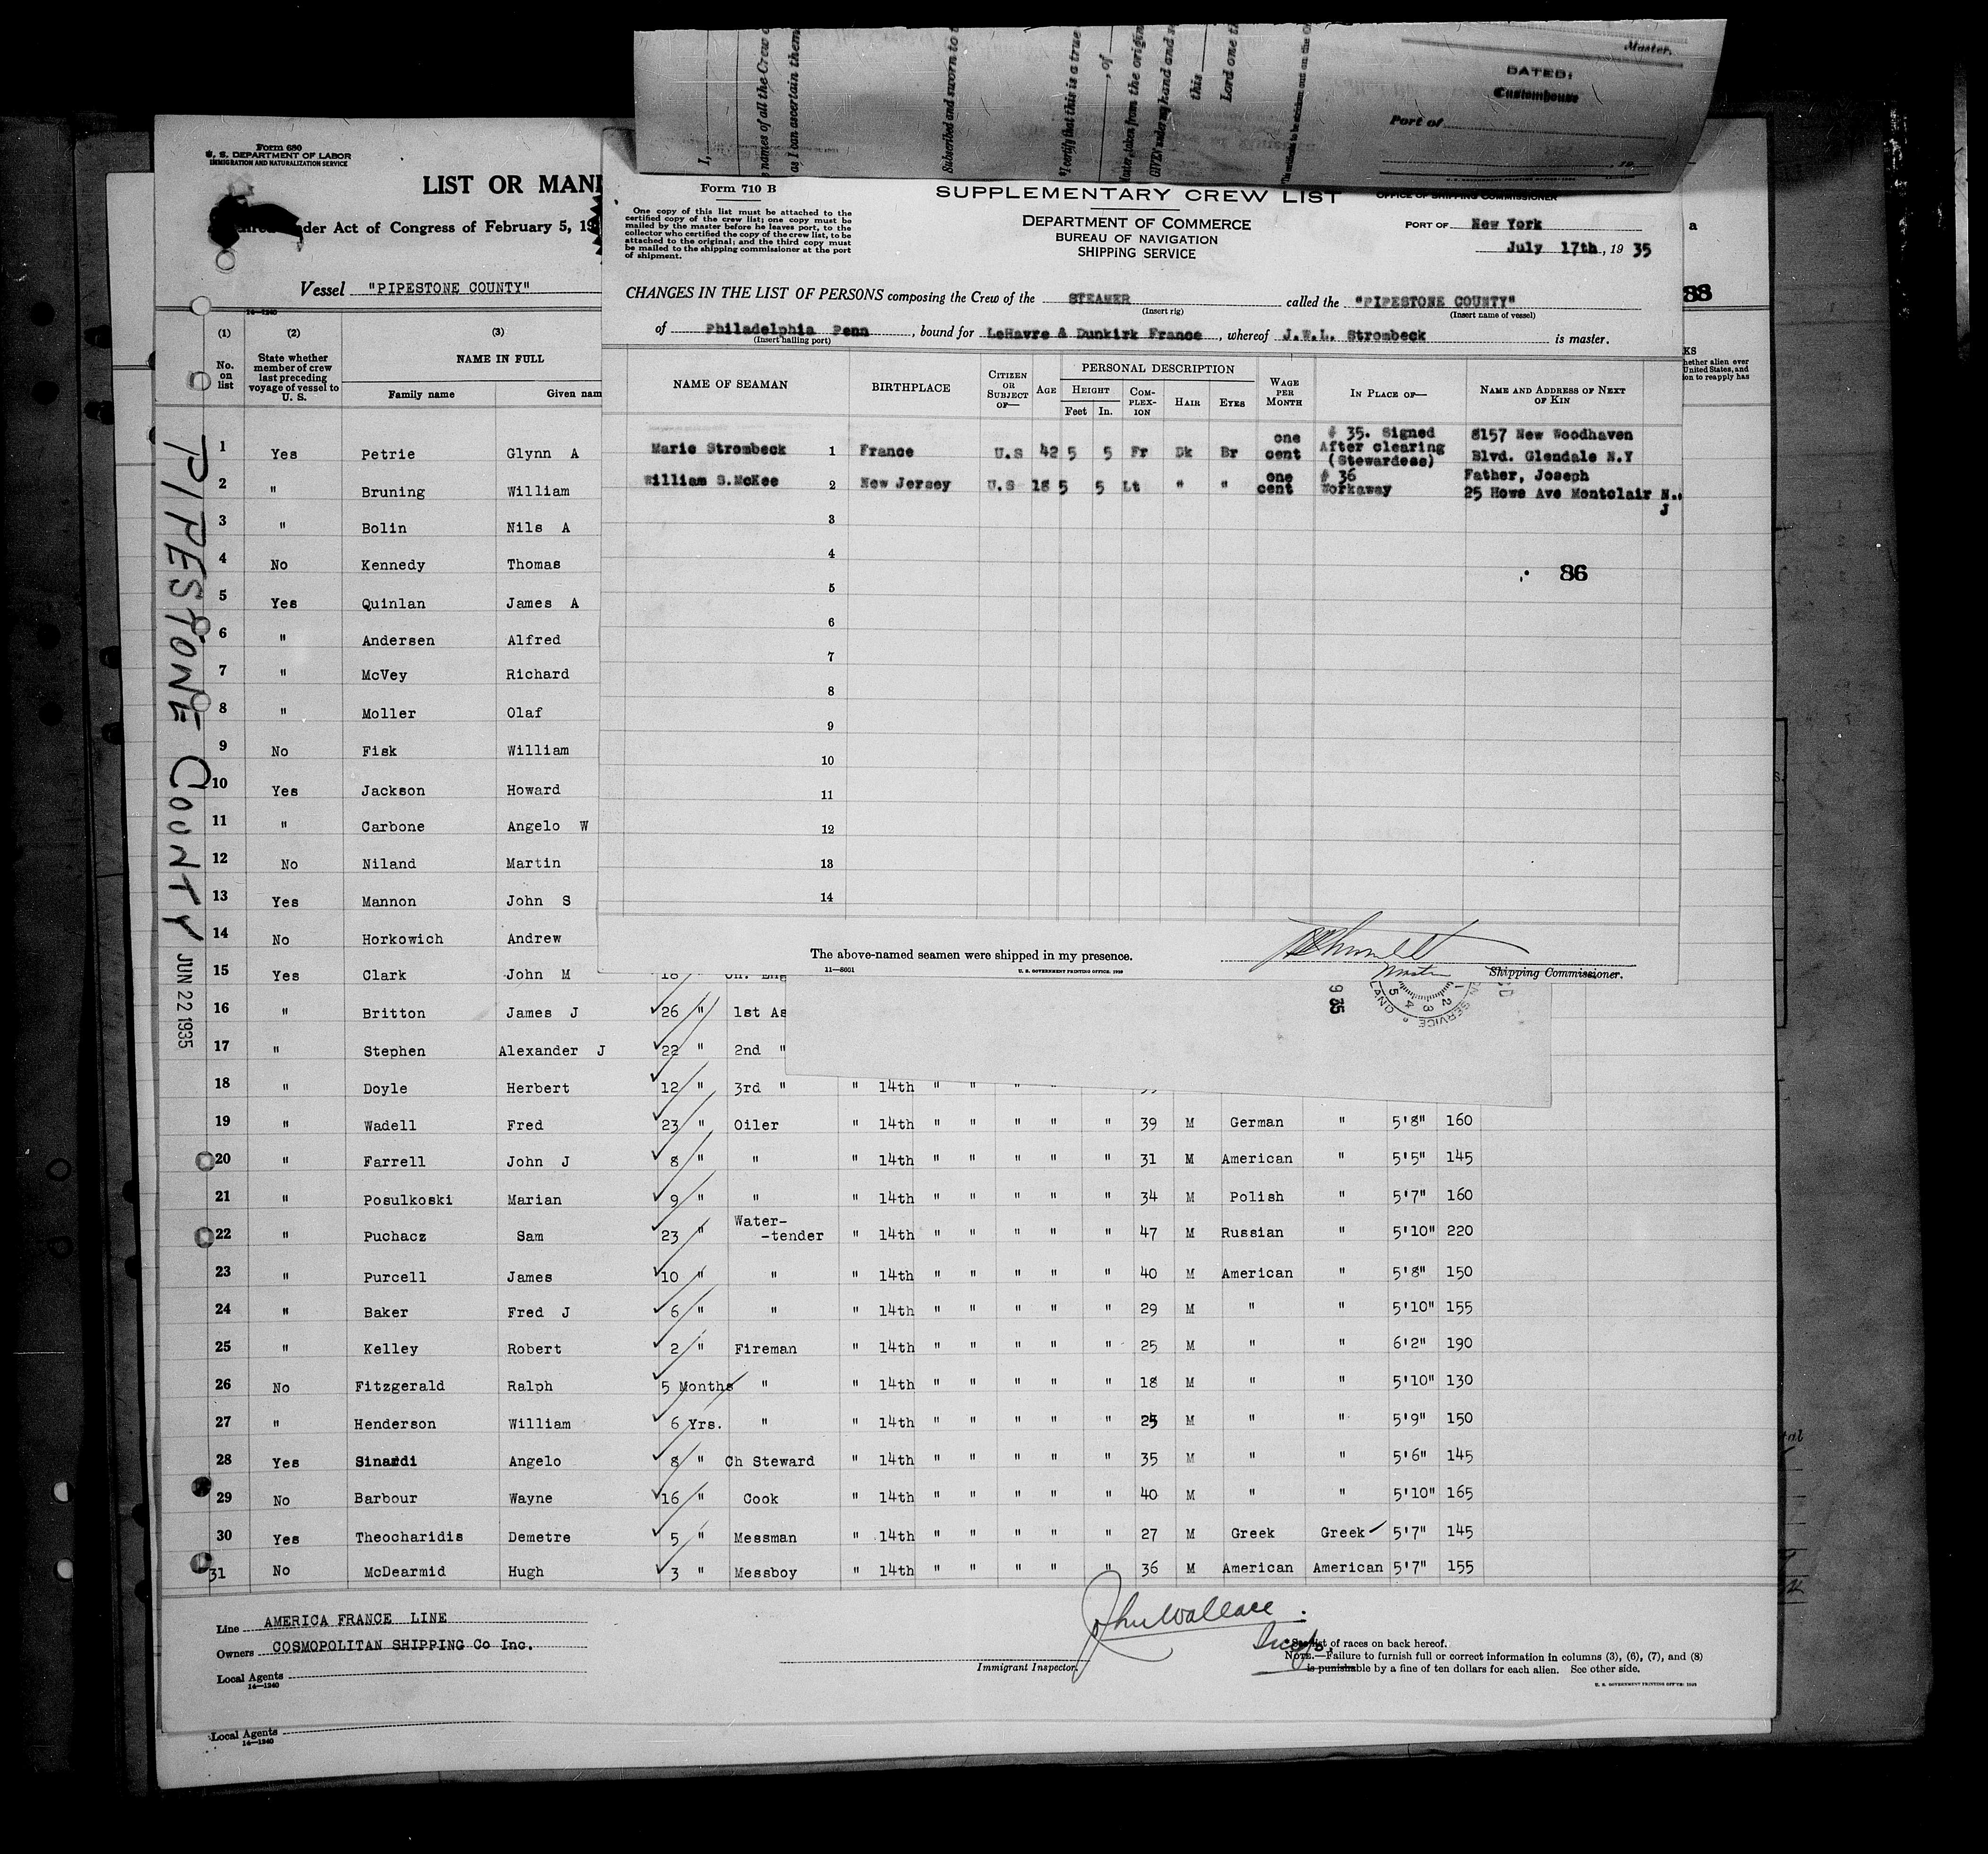 Master.
DATED:
Customhouse
Port of
I,
names of all the Crew
as I can ascertain them
Subscribed and sworn to
"I certify that this is a true
, of
taken from the origin
GIVEN under my hand and s
this
Lord one th
Form 680
U. S. DEPARTMENT OF LABOR
IMMIGRATION AND NATURALIZATION SERVICE
LIST OR MANI
der Act of Congress of February 5, 19
Vessel "PIPESTONE COUNTY"
Form 710 B
One copy of this list must be attached to the
certified copy of the crew list; one copy must be
mailed by the master before he leaves port, to the
collector who certified the copy of the crew list, to be
attached to the original; and the third copy must
be mailed to the shipping commissioner at the port
of shipment.
SUPPLEMENTARY CREW LIST
DEPARTMENT OF COMMERCE
BUREAU OF NAVIGATION
SHIPPING SERVICE
OFFICE OF SHIPPING COMMISSIONER
PORT OF New York
July 17th, 19 35
a
88
CHANGES IN THE LIST OF PERSONS composing the Crew of the STEAMER called the "PIPESTONE COUNTY"
(Insert rig) (Insert name of vessel)
of Philadelphia Penn, bound for LeHavre & Dunkirk France, whereof J.W.L. Strombeck is master.
(Insert hailing port)
NAME OF SEAMAN BIRTHPLACE CITIZEN OR SUBJECT OF— AGE PERSONAL DESCRIPTION HEIGHT Feet In. COM-PLEX-ION HAIR EYES WAGE PER MONTH IN PLACE OF— NAME AND ADDRESS OF NEXT OF KIN
Marie Strombeck 1 France U.S 42 5 5 Fr Dk Br one cent # 35. Signed After clearing (Stewardess) 8157 New Woodhaven Blvd. Glendale N.Y
William S.McKee 2 New Jersey U.S 18 5 5 Lt " " one cent # 36 Workaway Father, Joseph 25 Howe Ave Montclair N.J
3
4
86
5
6
7
8
9
10
11
12
13
14
The above-named seamen were shipped in my presence.
Master
Shipping Commissioner.
11—8601 U. S. GOVERNMENT PRINTING OFFICE: 1929
KS
hether alien ever
United States, and
ion to reapply has
14—1240
(1) (2) (3)
No. on list
State whether member of crew last preceding voyage of vessel to U. S.
NAME IN FULL
Family name Given nam
PIPESTONE COUNTY JUN 22 1935
1 Yes Petrie Glynn A
2 " Bruning William
3 " Bolin Nils A
4 No Kennedy Thomas
5 Yes Quinlan James A
6 " Andersen Alfred
7 " McVey Richard
8 " Moller Olaf
9 No Fisk William
10 Yes Jackson Howard
11 " Carbone Angelo W
12 No Niland Martin
13 Yes Mannon John S
14 No Horkowich Andrew
15 Yes Clark John M 18 Ch. Eng
16 " Britton James J 26 " 1st As
17 " Stephen Alexander J 22 " 2nd "
18 " Doyle Herbert 12 " 3rd " " 14th " " " "
19 " Wadell Fred 23 " Oiler " 14th " " " " " 39 M German " 5'8" 160
20 " Farrell John J 8 " " " 14th " " " " " 31 M American " 5'5" 145
21 " Posulkoski Marian 9 " " " 14th " " " " " 34 M Polish " 5'7" 160
22 " Puchacz Sam 23 " Water--tender " 14th " " " " " 47 M Russian " 5'10" 220
23 " Purcell James 10 " " " 14th " " " " " 40 M American " 5'8" 150
24 " Baker Fred J 6 " " " 14th " " " " " 29 M " " 5'10" 155
25 " Kelley Robert 2 " Fireman " 14th " " " " " 25 M " " 6'2" 190
26 No Fitzgerald Ralph 5 Months " " 14th " " " " " 18 M " " 5'10" 130
27 " Henderson William 6 Yrs. " " 14th " " " " " 25 M " " 5'9" 150
28 Yes Sinardi Angelo 8 " Ch Steward " 14th " " " " " 35 M " " 5'6" 145
29 No Barbour Wayne 16 " Cook " 14th " " " " " 40 M " " 5'10" 165
30 Yes Theocharidis Demetre 5 " Messman " 14th " " " " " 27 M Greek Greek 5'7" 145
31 No McDearmid Hugh 3 " Messboy " 14th " " " " " 36 M American American 5'7" 155
Line AMERICA FRANCE LINE
Owners COSMOPOLITAN SHIPPING Co Inc.
Local Agents
14—1240
John Wallace
Immigrant Inspector.
list of races on back hereof.
NOTE.—Failure to furnish full or correct information in columns (3), (6), (7), and (8)
is punishable by a fine of ten dollars for each alien. See other side.
Local Agents
14—1240